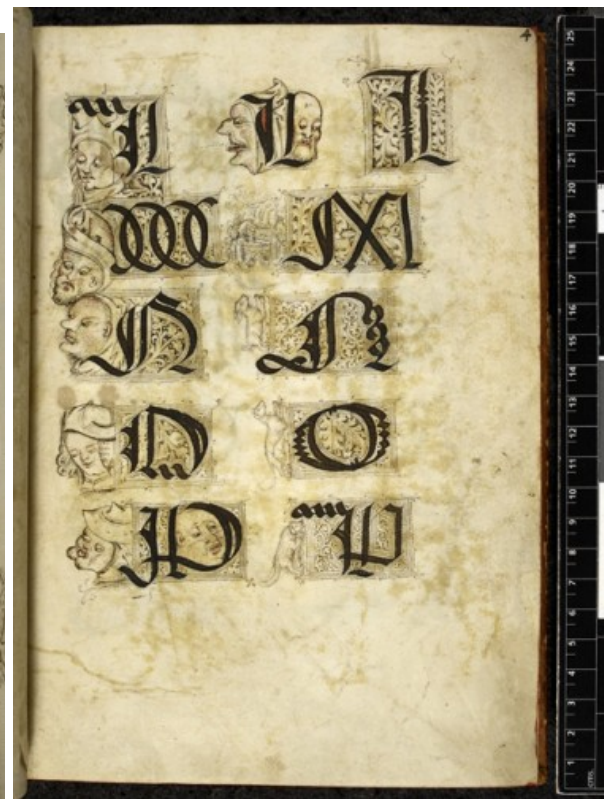 4
L L L
M M
N N
O
P P
25
24
23
22
21
20
19
18
17
16
15
14
13
12
11
10
9
8
7
6
5
4
3
2
1